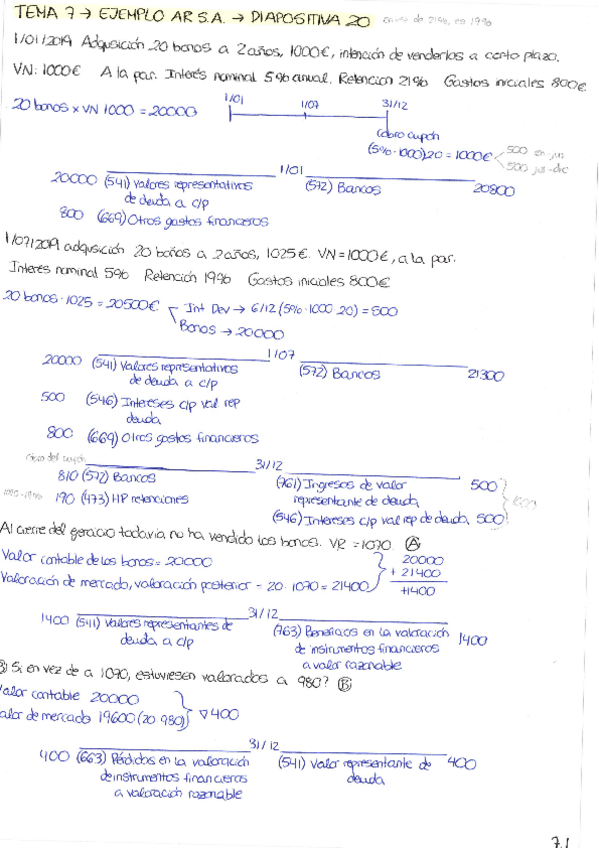 TEMA 7 → EJEMPLO AR S.A. → DIAPOSITIVA 20 en vez de 21%, es 19%
1/01/2019 Adquisición 20 bonos a 2 años, 1000€, intención de venderlos a corto plazo.
VN: 1000€ A la par. Interés nominal 5% anual. Retención 21% Gastos iniciales 800€
20 bonos x VN 1000 = 20000
1/01 1/07 31/12
Cobro cupón
(5%·1000)20 = 1000€
500 en-jun
500 jul-dic
1/01
20000 (541) Valores representativos de deuda a c/p
(572) Bancos 20800
800 (669) Otros gastos financieros
1/07/2019 adquisición 20 bonos a 2 años, 1025€. VN=1000€, a la par.
Interés nominal 5% Retención 19% Gastos iniciales 800€
20 bonos · 1025 = 20500€
Int Dev → 6/12 (5%·1000·20) = 500
Bonos → 20000
1/07
20000 (541) Valores representativos de deuda a c/p
(572) Bancos 21300
500 (546) Intereses c/p val rep deuda
800 (669) Otros gastos financieros
31/12
810 (572) Bancos
(761) Ingresos de valor representante de deuda 500
190 (473) HP retenciones
(546) Intereses c/p val rep de deuda 500
1000
Al cierre del ejercicio todavía no ha vendido los bonos. VR = 1070 Ⓐ
Valor contable de los bonos = 20000
Valoración de mercado, valoración posterior = 20·1070 = 21400
20000
+ 21400
+1400
31/12
1400 (541) Valores representantes de deuda a c/p
(763) Beneficios en la valoración de instrumentos financieros a valor razonable 1400
Ⓑ Si en vez de a 1090, estuviesen valorados a 980? Ⓑ
Valor contable 20000
Valor de mercado 19600 (20·980)
∇400
31/12
400 (663) Pérdidas en la valoración de instrumentos financieros a valoración razonable
(541) Valor representante de deuda 400
7.1